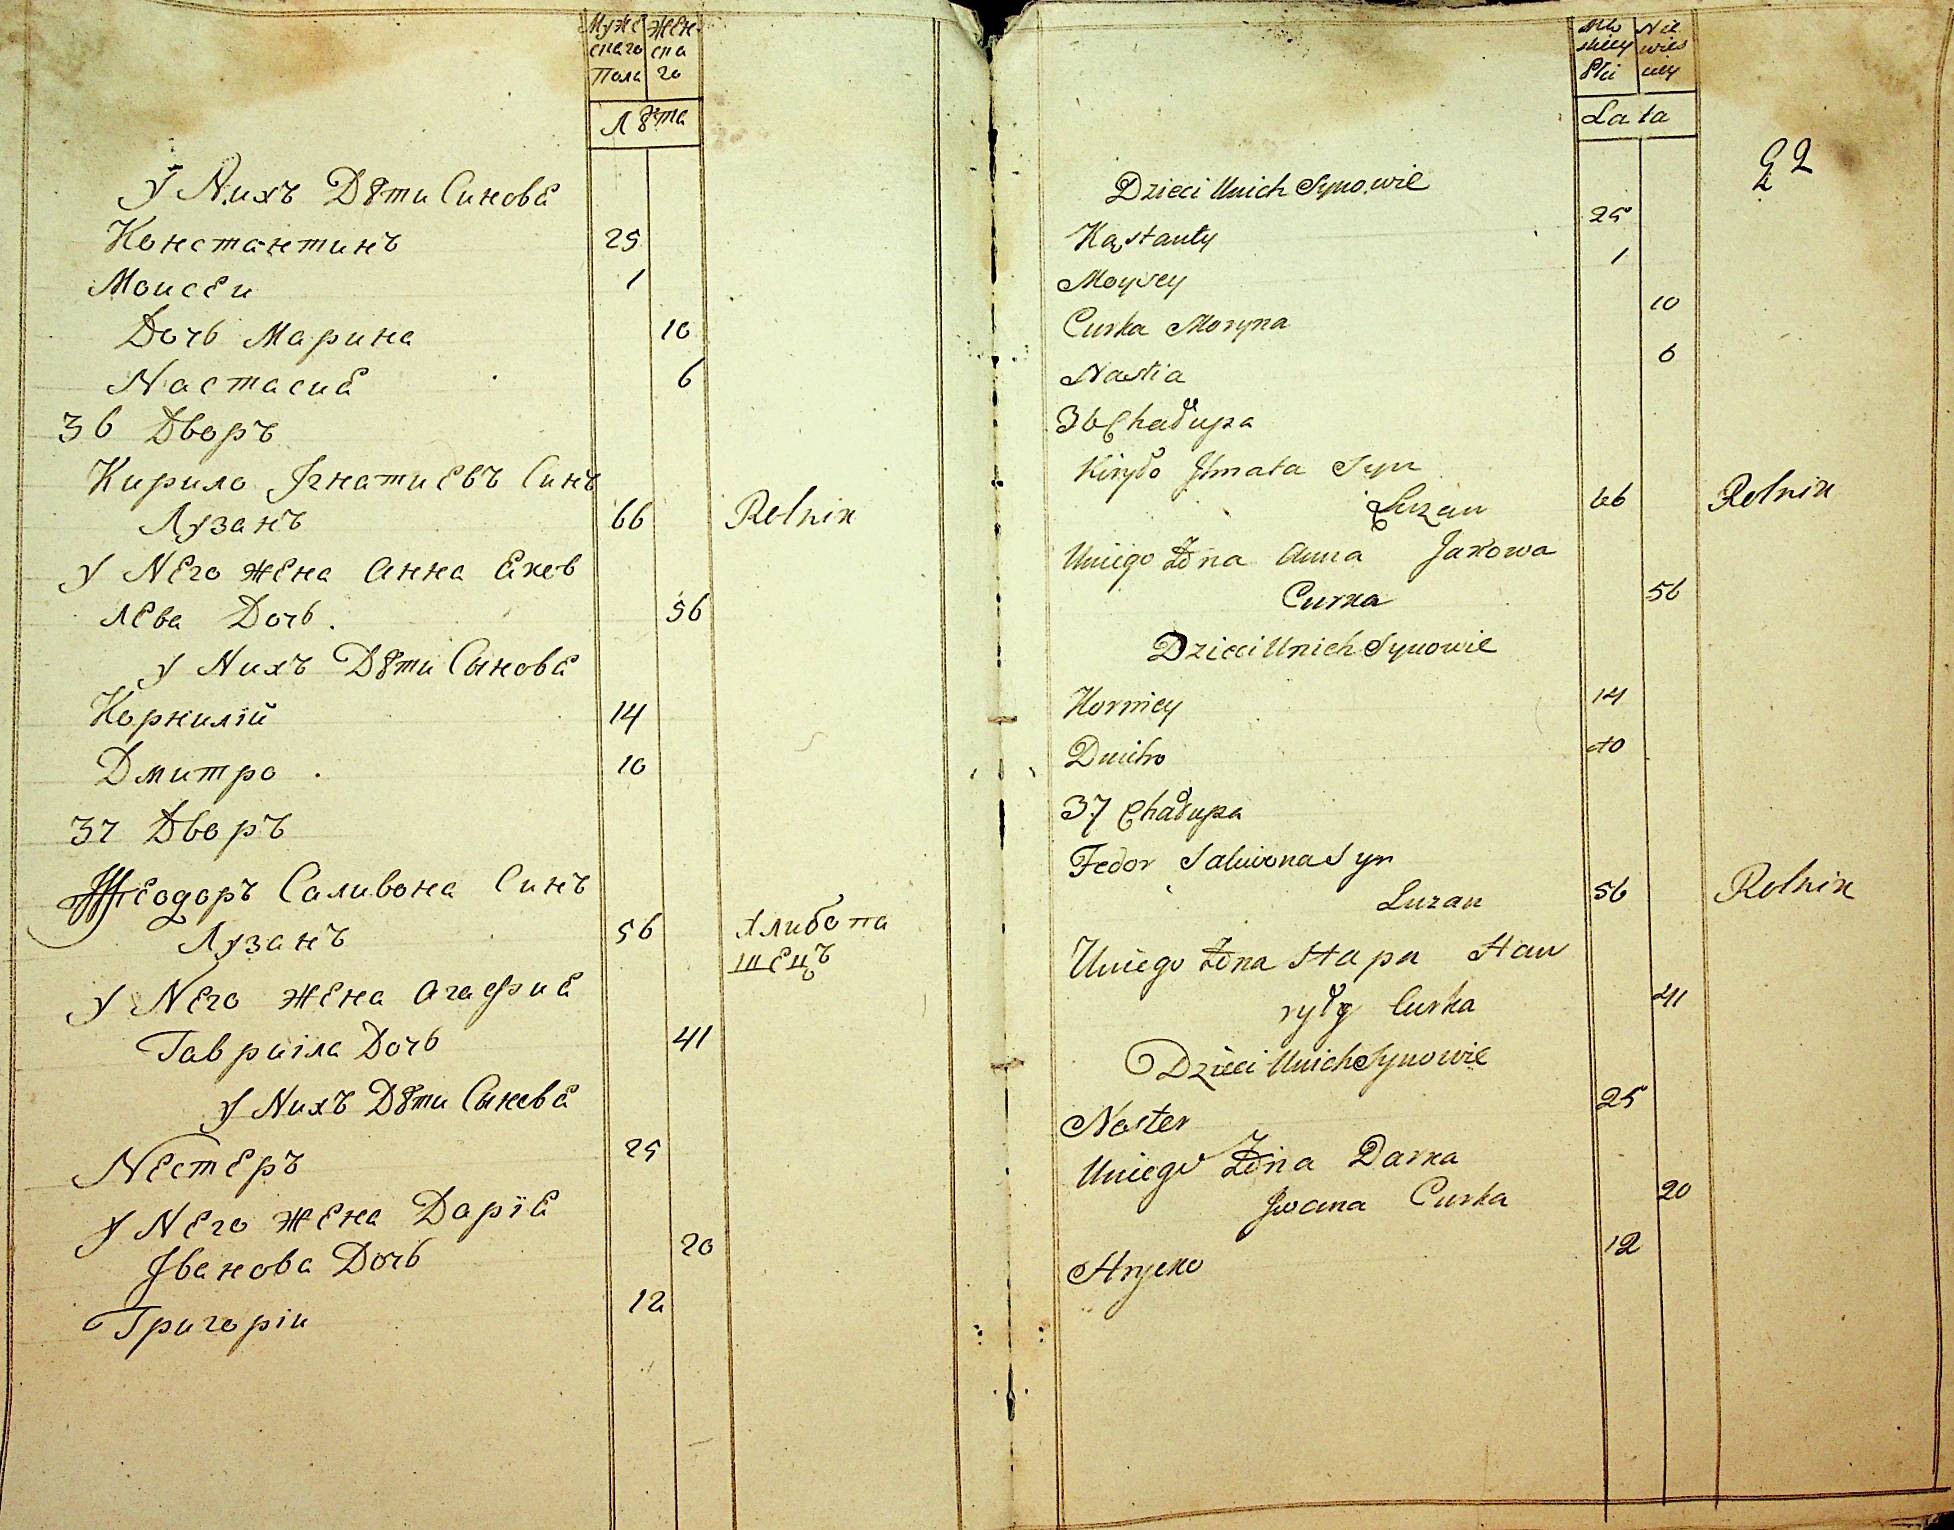 Муже Жен
скаго ска
Пола го
Лѣта
У Нихъ Дѣти Синовѣ
Константинъ 25
Моисеи 1
Дочь Марина 10
Настасиѣ 6
36 Дворъ
Кирило Iгнатиевъ Синъ
Лузанъ 66 Rolnik
У Него жена Анна Яков
лева Дочь. 56
У Нихъ Дѣти Сыновѣ
Корнилiй 14
Дмитро 10
37 Дворъ
Феодоръ Саливона Синъ
Лузанъ 56 Хлибопа
шецъ
У Него жена Агафиѣ
Гавриiла Дочь 41
У Нихъ Дѣти Сыновѣ
Нестеръ 25
У Него жена Дарïѣ
Iванова Дочь 20
Григорiи 12
Mę Nie
skiey wies
Płci ciey
Lata
22
Dzieci Unich Synowie
Kąstanty 25
Moysey 1
Curka Moryna 10
Nastia 6
36 Chałupa
Kiryło Hnata Syn
Luzan 66 Rolnik
Uniego Żona Anna Jakowa
Curka 56
Dzieci Unich Synowie
Korniey 14
Dmitro 10
37 Chałupa
Fedor Saliwona Syn
Luzan 56 Rolnik
Uniego Żona Hapa Haw
ryły Curka 41
Dzieci Unich Synowie
Nester 25
Uniego Żona Darka
Jwana Curka 20
Hrycko 12